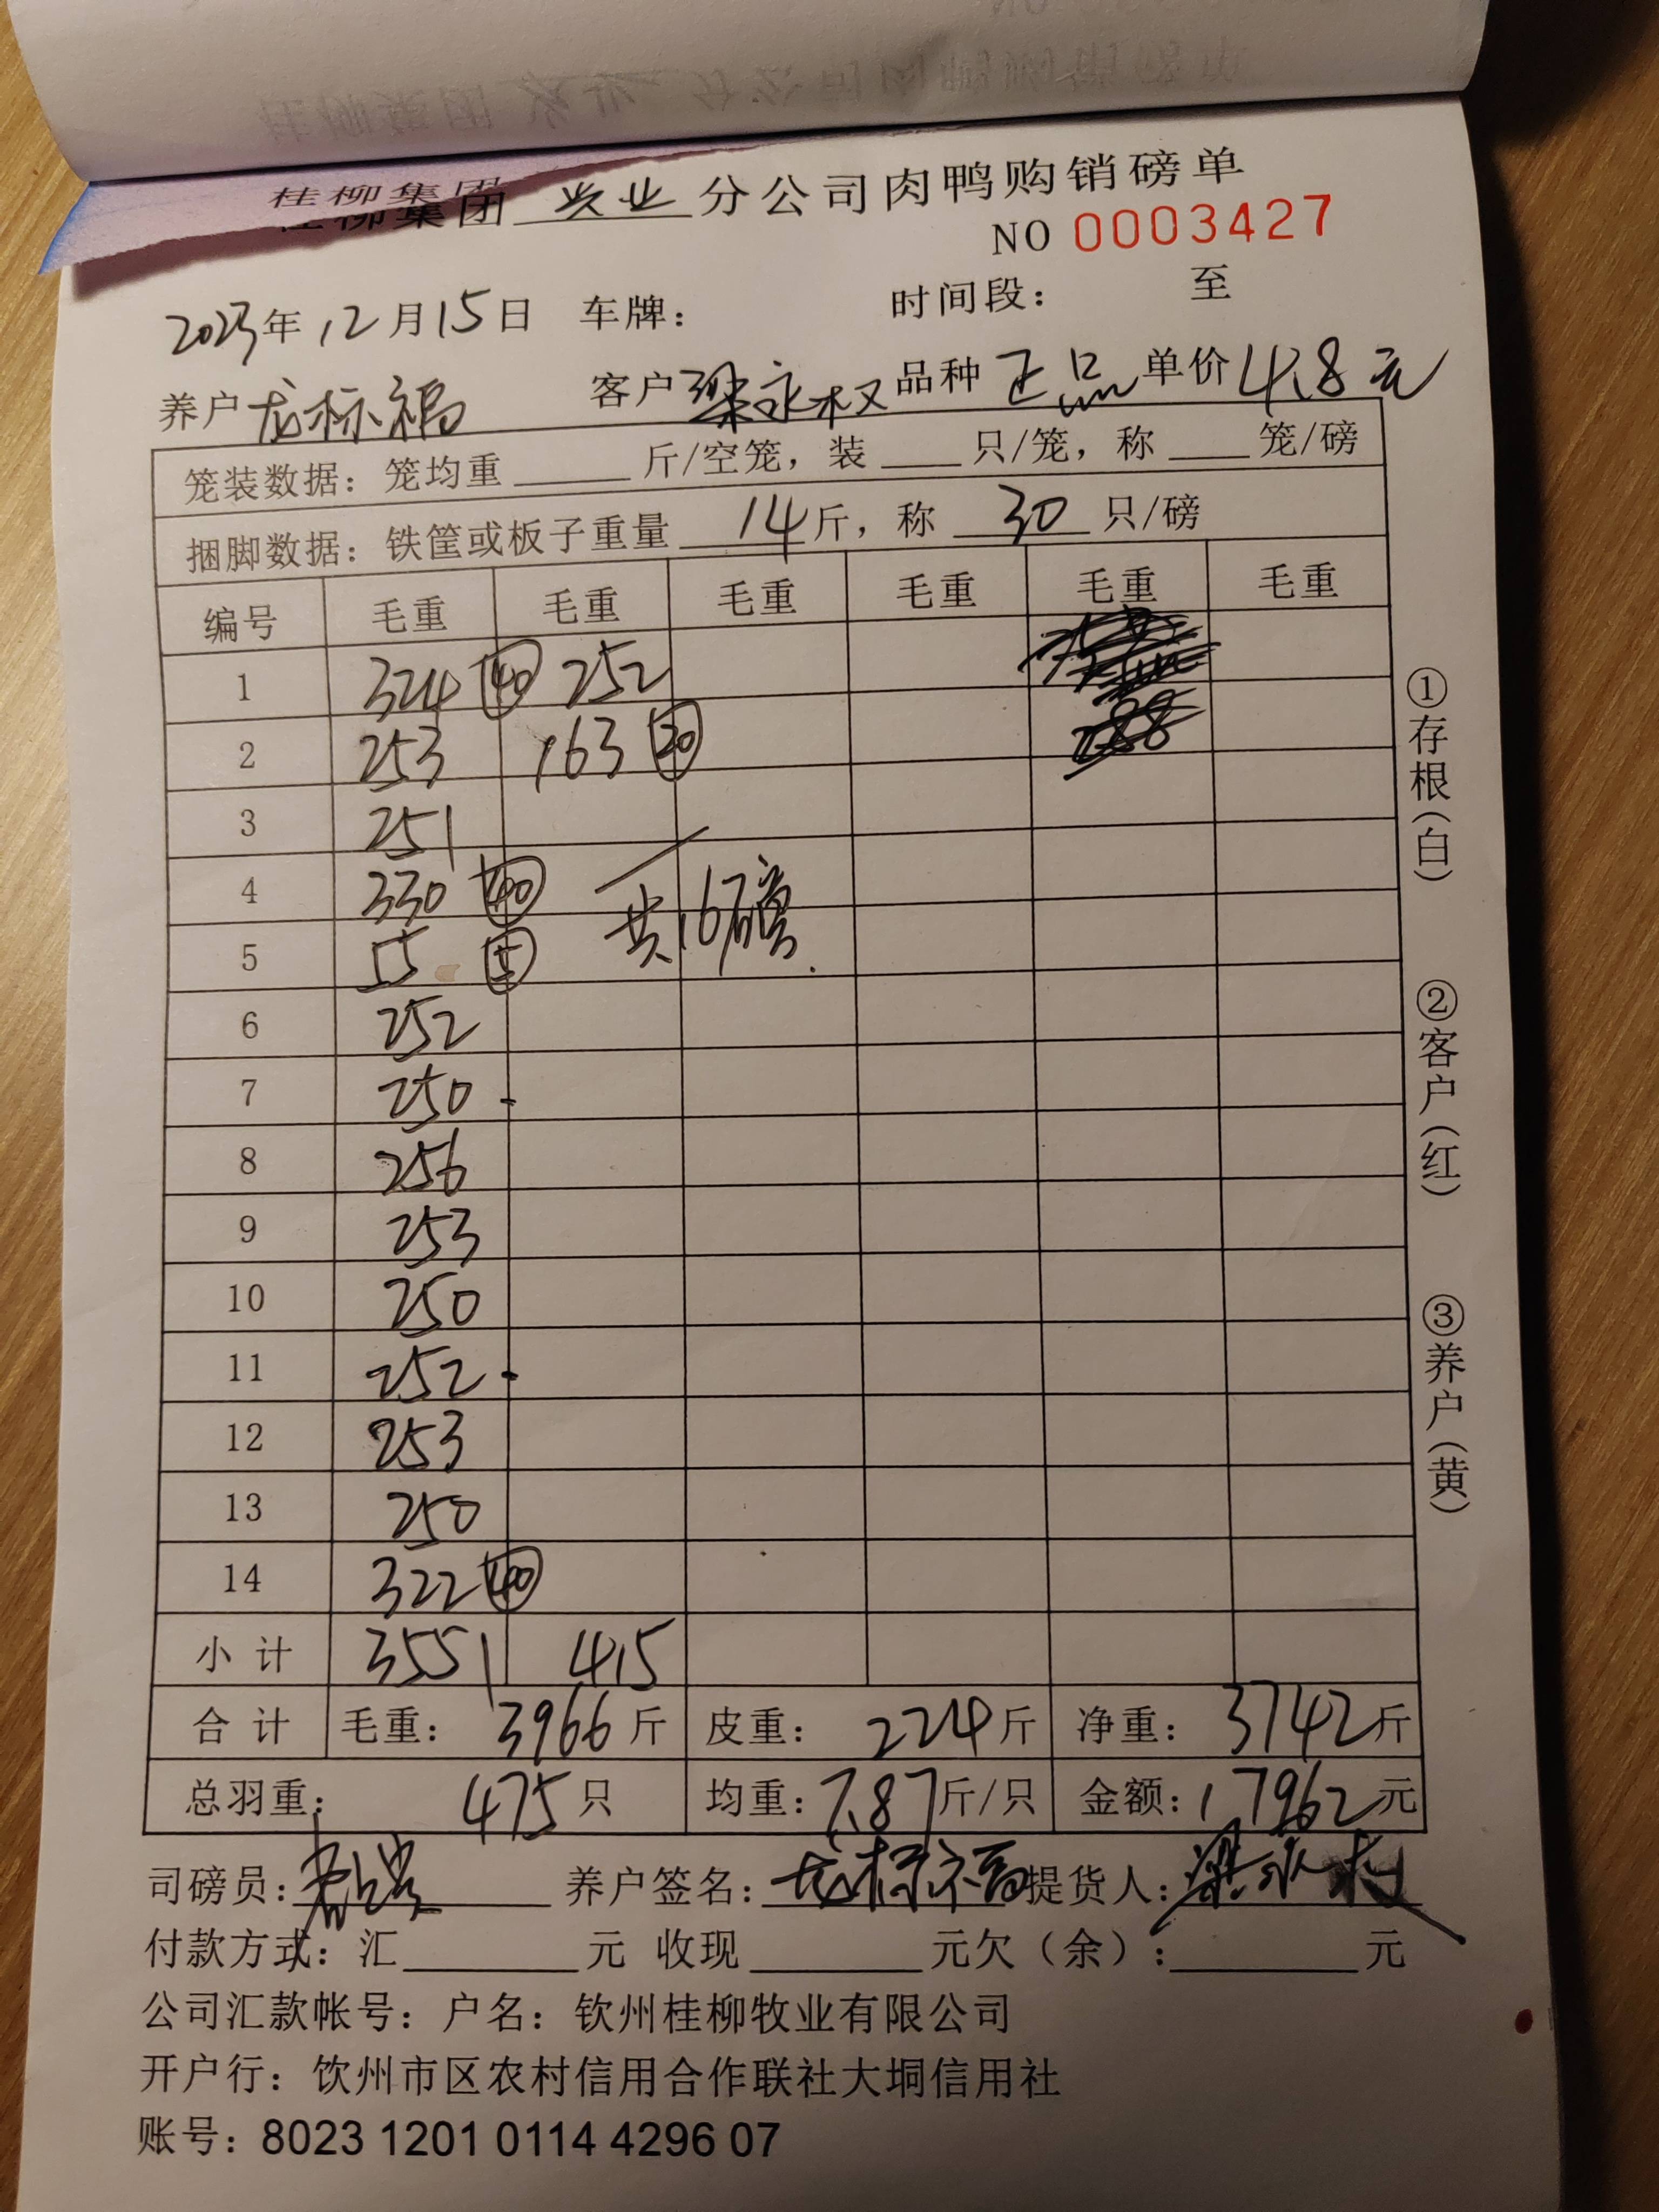 桂柳集团
桂柳集团 兴业 分公司肉鸭购销磅单
NO 0003427
2023年 12月15日 车牌： 时间段： 至
养户 龙标福 客户 梁永权 品种 正品 单价 4.8元
笼装数据：笼均重 斤/空笼，装 只/笼，称 笼/磅
捆脚数据：铁筐或板子重量 14 斤，称 30 只/磅
编号 毛重 毛重 毛重 毛重 毛重 毛重
1 324 40 252
2 253 163 20 288
3 251
4 330 40
5 55 5 共16磅.
6 252
7 250
8 256
9 253
10 250
11 252
12 253
13 250
14 322 40
小计 3551 415
合计 毛重： 3966 斤 皮重： 224 斤 净重： 3742 斤
总羽重： 475 只 均重： 7.87 斤/只 金额： 17962 元
司磅员： 养户签名： 龙标福 提货人： 梁永权
付款方式：汇 元 收现 元欠（余）： 元
公司汇款帐号：户名：钦州桂柳牧业有限公司
开户行：饮州市区农村信用合作联社大垌信用社
账号：8023 1201 0114 4296 07
①存根（白）
②客户（红）
③养户（黄）